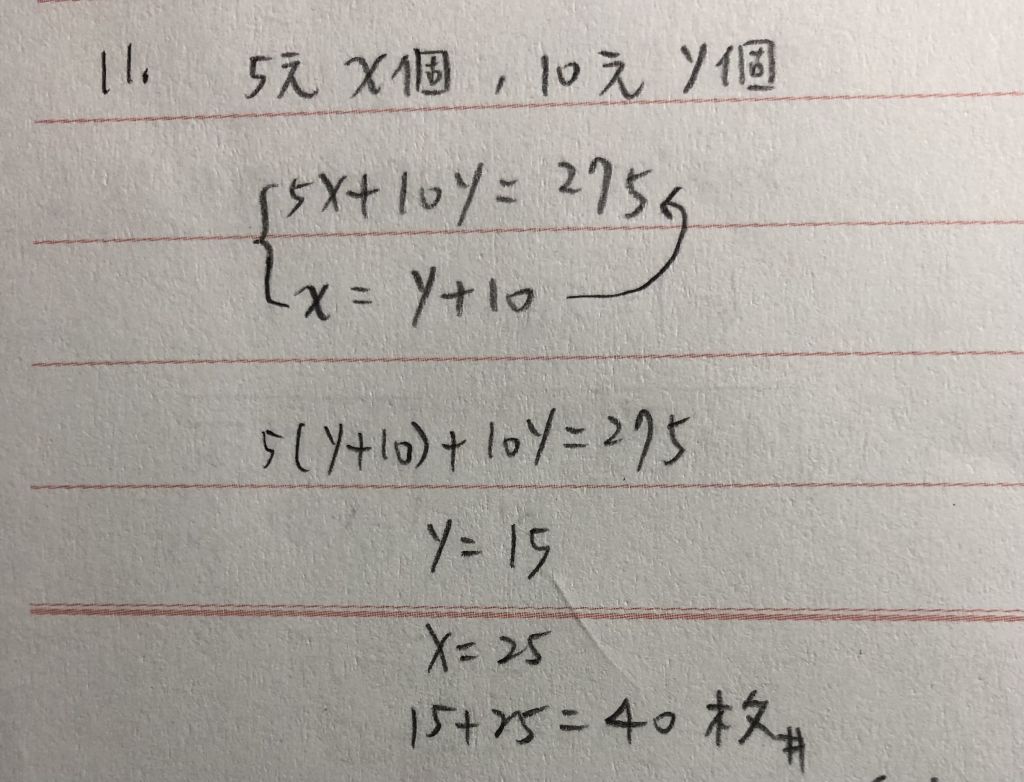 11. 5元 x個，10元 y個
5x+10y=275
x=y+10
5(y+10)+10y=275
y=15
x=25
15+25=40枚#